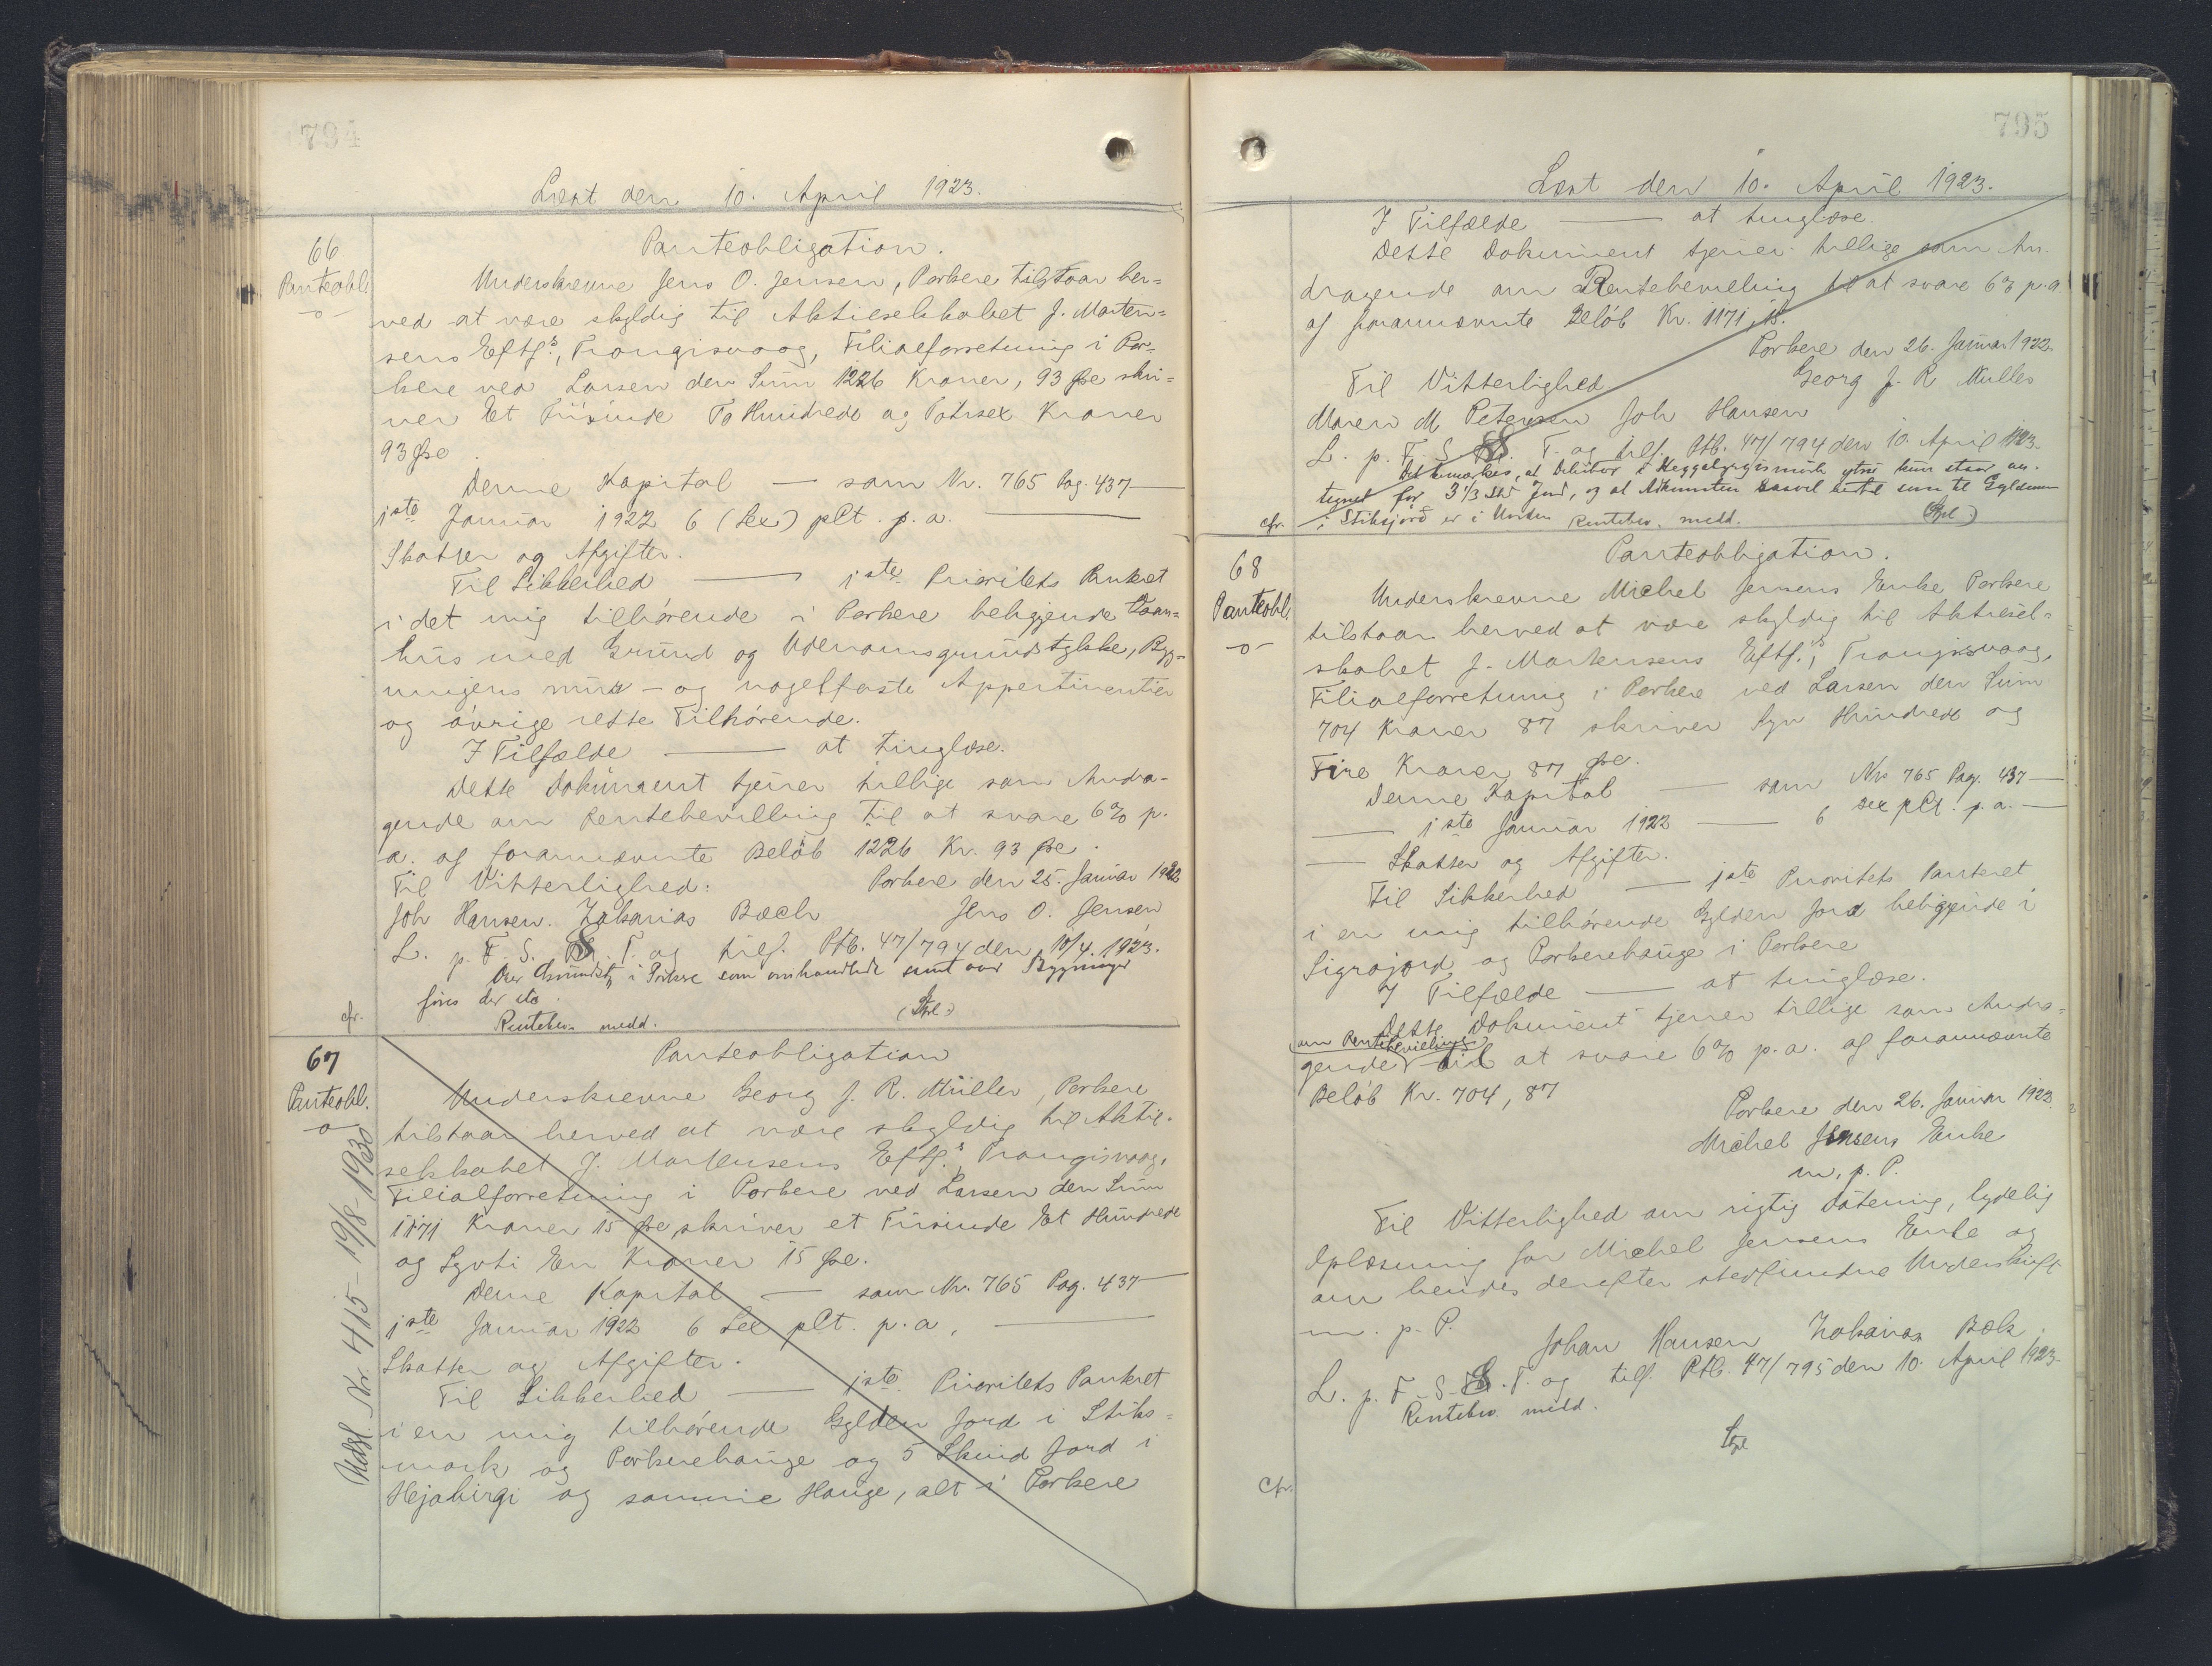 794
Læst den 10. April 1923.
66
Panteobl.
Panteobligation.
Underskrevne Jens O. Jensen, Porkere tilstaar her=
ved at være skyldig til Aktieselskabet J. Morten=
sens Eftf.s, Trongisvaag, Filialforretning i Por=
kere ved Larsen den Sum 1226 Kroner, 93 Øre skri=
ver Et Tusinde To Hundrede og Kroner
93 Øre.
Denne Kapital — som Nr. 765 Pag. 437 —
1ste Januar 1922 6 (Sex) pCt. p. a. —
Skatter og Afgifter.
Til Sikkerhed — 1ste Prioritets Panteret
i det mig tilhørende i Porkere beliggende Vaan=
hus med Grund og Udenomsgrundstykke, Byg=
ningens mur- og nagelfaste Appertinentier
og øvrige rette Tilhørende.
I Tilfælde — at tinglæse.
Dette Dokument tjener tillige som Andra-
gende om Rentebevilling til at svare 6% p.
a. af forannævnte Beløb 1226 Kr. 93 Øre.
Til Vitterlighed: Porkere den 25. Januar 1922
Joh Hansen. Zakarias Bæch Jens O. Jensen
L. p. F. S. T. og tilf. Ptb. 47/794 den 10/4. 1923.
Grundst. i Porkere som omhandlede samt over Bygninger
Rentebev. medd.
cfr.
67
Panteobl.
Udsl. Nr. 415 - 19/8 - 1930
Panteobligation
Underskrevne Georg J. R. Müller, Porkere
tilstaar herved at være skyldig til Aktie-
selskabet J. Mortensens Eftf.s, Trongisvaag,
Filialforretning i Porkere ved Larsen den Sum
1171 Kroner 15 Øre, skriver et Tusinde Et Hundrede
og Syvti En Kroner 15 Øre.
Denne Kapital — som Nr. 765 Pag. 437 —
1ste Januar 1922 6 Sex pCt. p. a. —
Skatter og Afgifter.
Til Sikkerhed — 1ste Prioritets Panteret
i en mig tilhørende Gylden Jord i Stiks=
mark og Porkerehauge og 5 Skind Jord i
Hejabirgi og samme Hauge, alt i Porkere
795
Læst den 10. April 1923.
I Tilfælde — at tinglæse.
Dette Dokument tjener tillige som An-
dragende om Rentebevilling til at svare 6% p. a
af forannævnte Beløb Kr. 1171, 15.
Porkere den 26. Januar 1922.
Til Vitterlighed Georg J. R Müller
Maren M. Petersen Joh Hansen
L. p. F. S. T. og tilf. Ptb. 47/794 den 10. April 1923.
Det bemærkes, at Debitor i kun staar an-
tegnet for 3 1/3 Skd Jord, og at
i er i Rentebev. medd.
cfr.
68
Panteobl.
Panteobligation.
Underskrevne Michel Jensens Enke Porkere
tilstaar herved at være skyldig til Aktiesel=
skabet J. Mortensens Eftf.s, Trongisvaag,
Filialforretning i Porkere ved Larsen den Sum
704 Kroner 87 skriver Syv Hundrede og
Fire Kroner 87 Øre.
Denne Kapital — som Nr. 765 Pag. 437 —
— 1ste Januar 1922 — 6 sex pCt. p. a. —
— Skatter og Afgifter.
Til Sikkerhed — 1ste Prioritets Panteret
i en mig tilhørende Gylden Jord beliggende i
Sigrajord og Porkerehauge i Porkere
I Tilfælde — at tinglæse.
Dette Dokument tjener tillige som Andra=
om Rentebevilling
gende til at svare 6% p. a. af forannævnte
Beløb Kr. 704, 87
Porkere den 26. Januar 1923.
Michel Jensens Enke
m. p. P.
Til Vitterlighed om rigtig Datering, lydelig
Oplæsning for Michel Jensens Enke og
om hendes derefter stedfundne Underskrift
m. p. P.
Johan Hansen Zakarias Bæk.
L. p. F. S. T. og tilf. Ptb. 47/795 den 10. April 1923.
Rentebev. medd.
cfr.